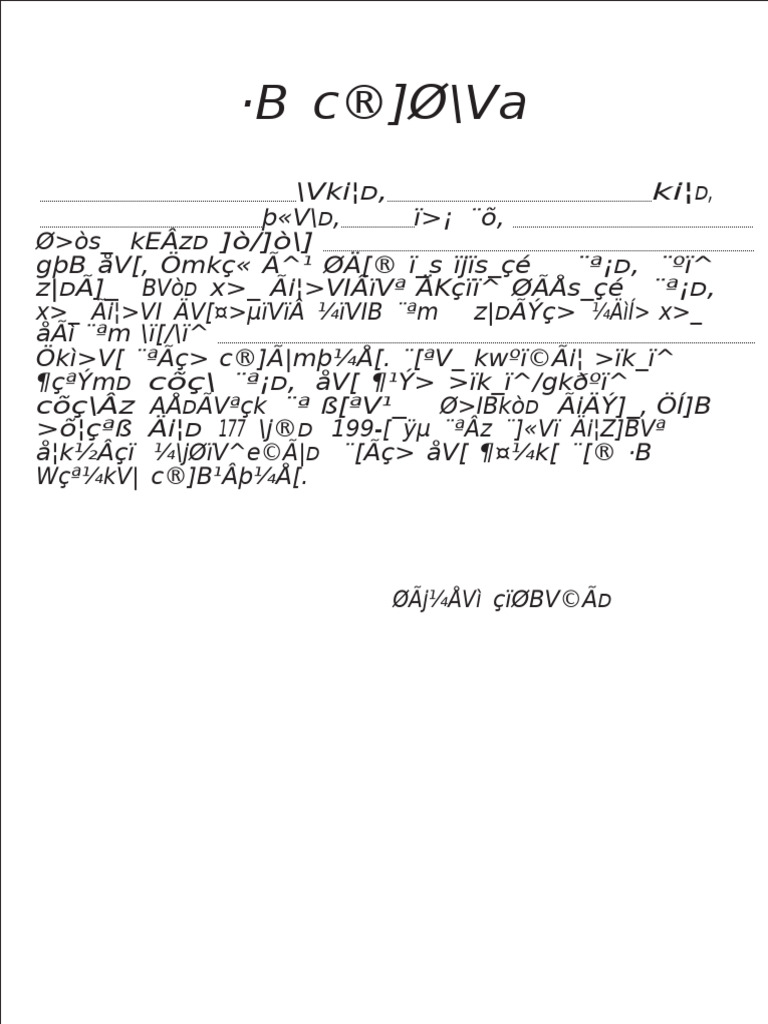 ·B c®]Ø\Va
\Vki¦D, ki¦D,
þ«V\D, ï>¡ ¨õ,
Ø>òs_ kEÂzD ]ò/]ò\]
gþB åV[, Ömkç« Ã^¹ ØÄ[® ï_s ïjïs_çé ¨ª¡D, ¨ºï^
z|DÃ]_ BVòD x>_ Ãi¦>VIÂïVª ÃKçïï^ ØÃÅs_çé ¨ª¡D,
x>_ Ãi¦>VI ÄV[¤>µïVïÂ ¼ïVIB ¨ªm z|DÃÝç> ¼ÄìÍ> x>_
åÃì ¨ªm \ï[/\ï^
Ökì>V[ ¨ªÃç> c®]Ã|mþ¼Å[. ¨[ªV_ kwºï©Ãi¦ >ïk_ï^
¶çªÝmD cõç\ ¨ª¡D, åV[ ¶¹Ý> >ïk_ï^/gkðºï^
cõç\Âz AÅDÃVªçk ¨ª ß[ªV¹_ Ø>IBkòD ÃiÄÝ]_, ÖÍ]B
>õ¦çªß Äi¦D 177 \j®D 199-[ ÿµ ¨ªÂz ¨]«Vï Äi¦Z]BVª
å¦k½Âçï ¼\jØïV^e©Ã|D ¨[Ãç> åV[ ¶¤¼k[ ¨[® ·B
Wçª¼kV| c®]B¹Âþ¼Å[.
ØÃj¼ÅVì çïØBV©ÃD